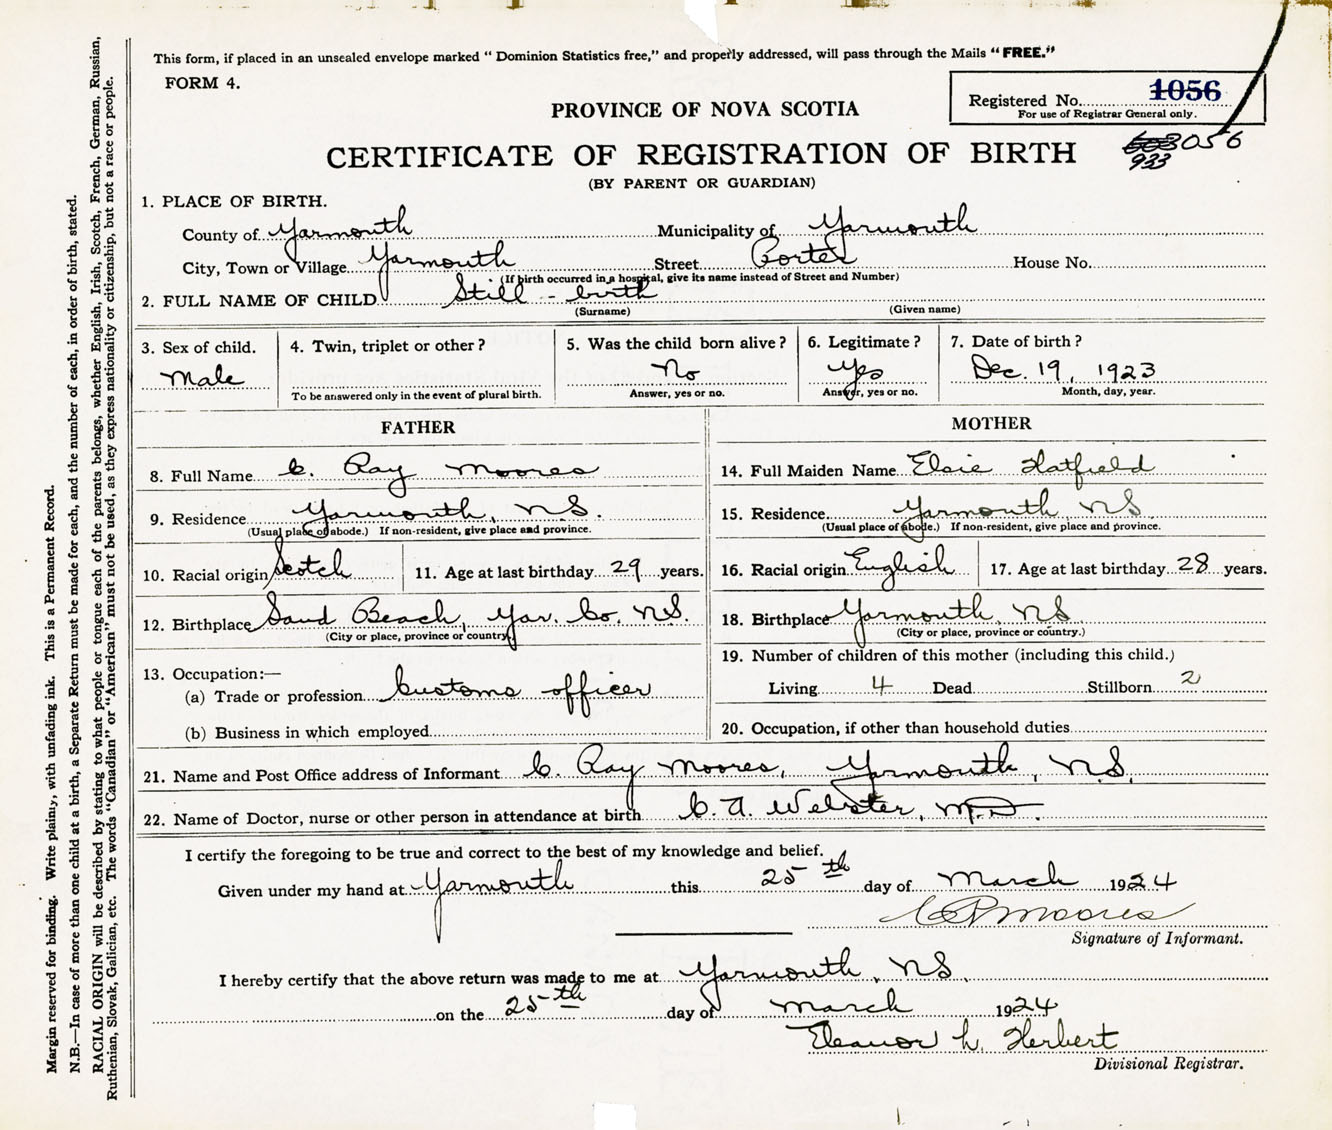 This form, if placed in an unsealed envelope marked “ Dominion Statistics free,” and properly addressed, will pass through the Mails “FREE.”
FORM 4.
Registered No. 1056
For use of Registrar General only.
933 056
PROVINCE OF NOVA SCOTIA
CERTIFICATE OF REGISTRATION OF BIRTH
(BY PARENT OR GUARDIAN)
1. PLACE OF BIRTH.
County of Yarmouth Municipality of Yarmouth
City, Town or Village Yarmouth Street Porter House No.
(If birth occurred in a hospital, give its name instead of Street and Number)
2. FULL NAME OF CHILD Still - birth
(Surname) (Given name)
3. Sex of child. 4. Twin, triplet or other ? 5. Was the child born alive ? 6. Legitimate ? 7. Date of birth ?
Male No Yes Dec. 19, 1923
To be answered only in the event of plural birth. Answer, yes or no. Answer, yes or no. Month, day, year.
FATHER
8. Full Name C. Ray Moores
9. Residence Yarmouth, N.S.
(Usual place of abode.) If non-resident, give place and province.
10. Racial origin Scotch 11. Age at last birthday 29 years.
12. Birthplace Sand Beach, Yar. Co. N.S.
(City or place, province or country.)
13. Occupation:—
(a) Trade or profession Customs officer
(b) Business in which employed
MOTHER
14. Full Maiden Name Elsie Hatfield
15. Residence Yarmouth NS
(Usual place of abode.) If non-resident, give place and province.
16. Racial origin English 17. Age at last birthday 28 years.
18. Birthplace Yarmouth, NS
(City or place, province or country.)
19. Number of children of this mother (including this child.)
Living 4 Dead Stillborn 2
20. Occupation, if other than household duties
21. Name and Post Office address of Informant C. Ray Moores, Yarmouth, N.S.
22. Name of Doctor, nurse or other person in attendance at birth C. A. Webster, M.D.
I certify the foregoing to be true and correct to the best of my knowledge and belief.
Given under my hand at Yarmouth this 25th day of March 1924
C R Moores
Signature of Informant.
I hereby certify that the above return was made to me at Yarmouth, NS
on the 25th day of March 1924
Eleanor L. Herbert
Divisional Registrar.
Margin reserved for binding. Write plainly, with unfading ink. This is a Permanent Record.
N.B.—In case of more than one child at a birth, a Separate Return must be made for each, and the number of each, in order of birth, stated.
RACIAL ORIGIN will be described by stating to what people or tongue each of the parents belongs, whether English, Irish, Scotch, French, German, Russian,
Ruthenian, Slovak, Galician, etc. The words “Canadian” or “American” must not be used, as they express nationality or citizenship, but not a race or people.